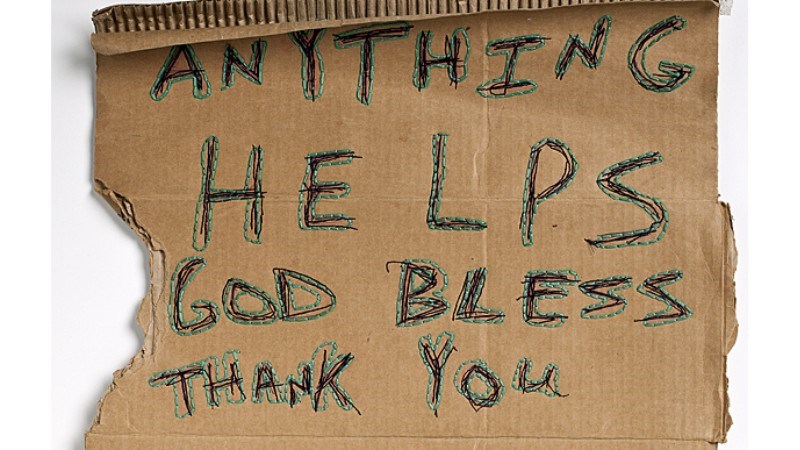 ANYTHING
HELPS
GOD BLESS
THANK YOU